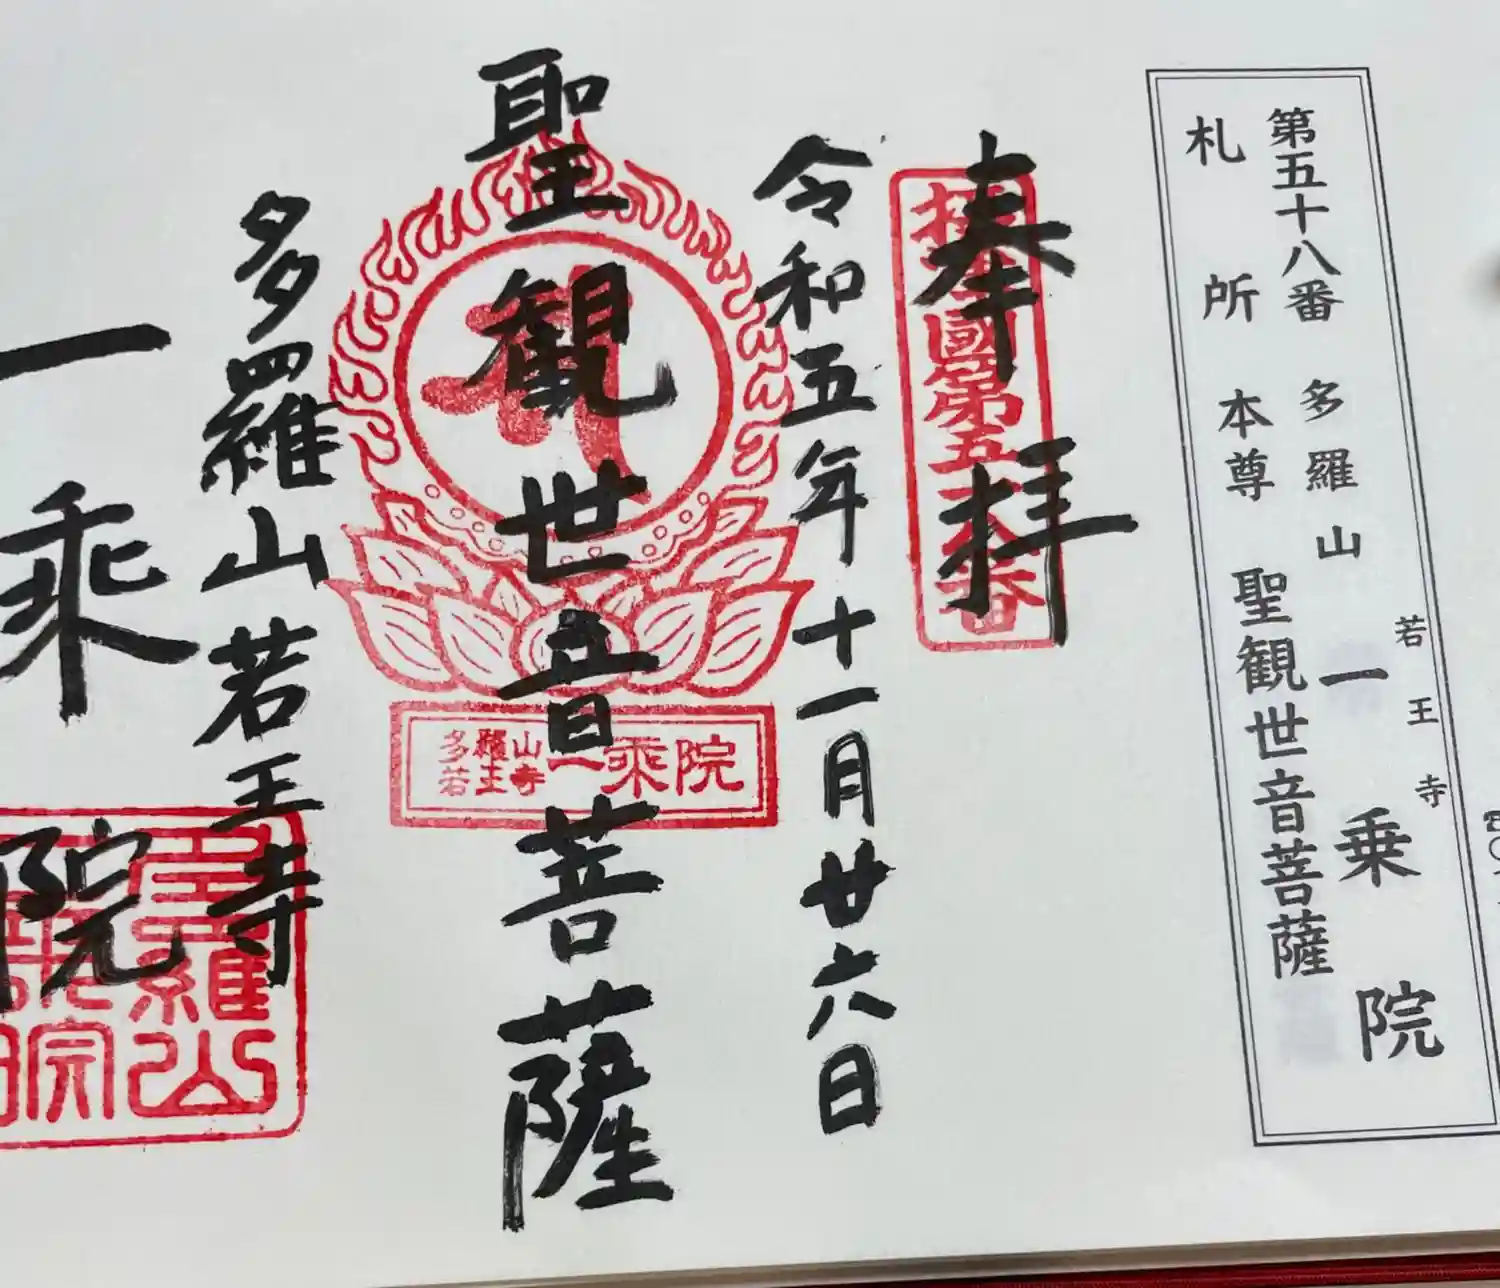 第五十八番 多羅山 若王寺 一乗院
札所本尊 聖観世音菩薩
奉拝
令和五年十一月廿六日
聖観世音菩薩
多羅山若王寺
一乗院
國第五十八番
多羅山
若王寺
一乘院
羅山
院